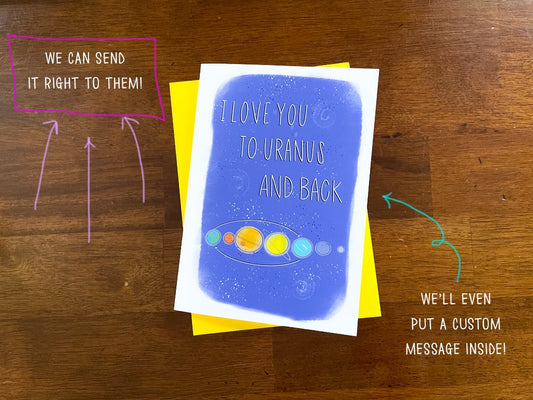 WE CAN SEND
IT RIGHT TO THEM!
I LOVE YOU
TO URANUS
AND BACK
WE'LL EVEN
PUT A CUSTOM
MESSAGE INSIDE!